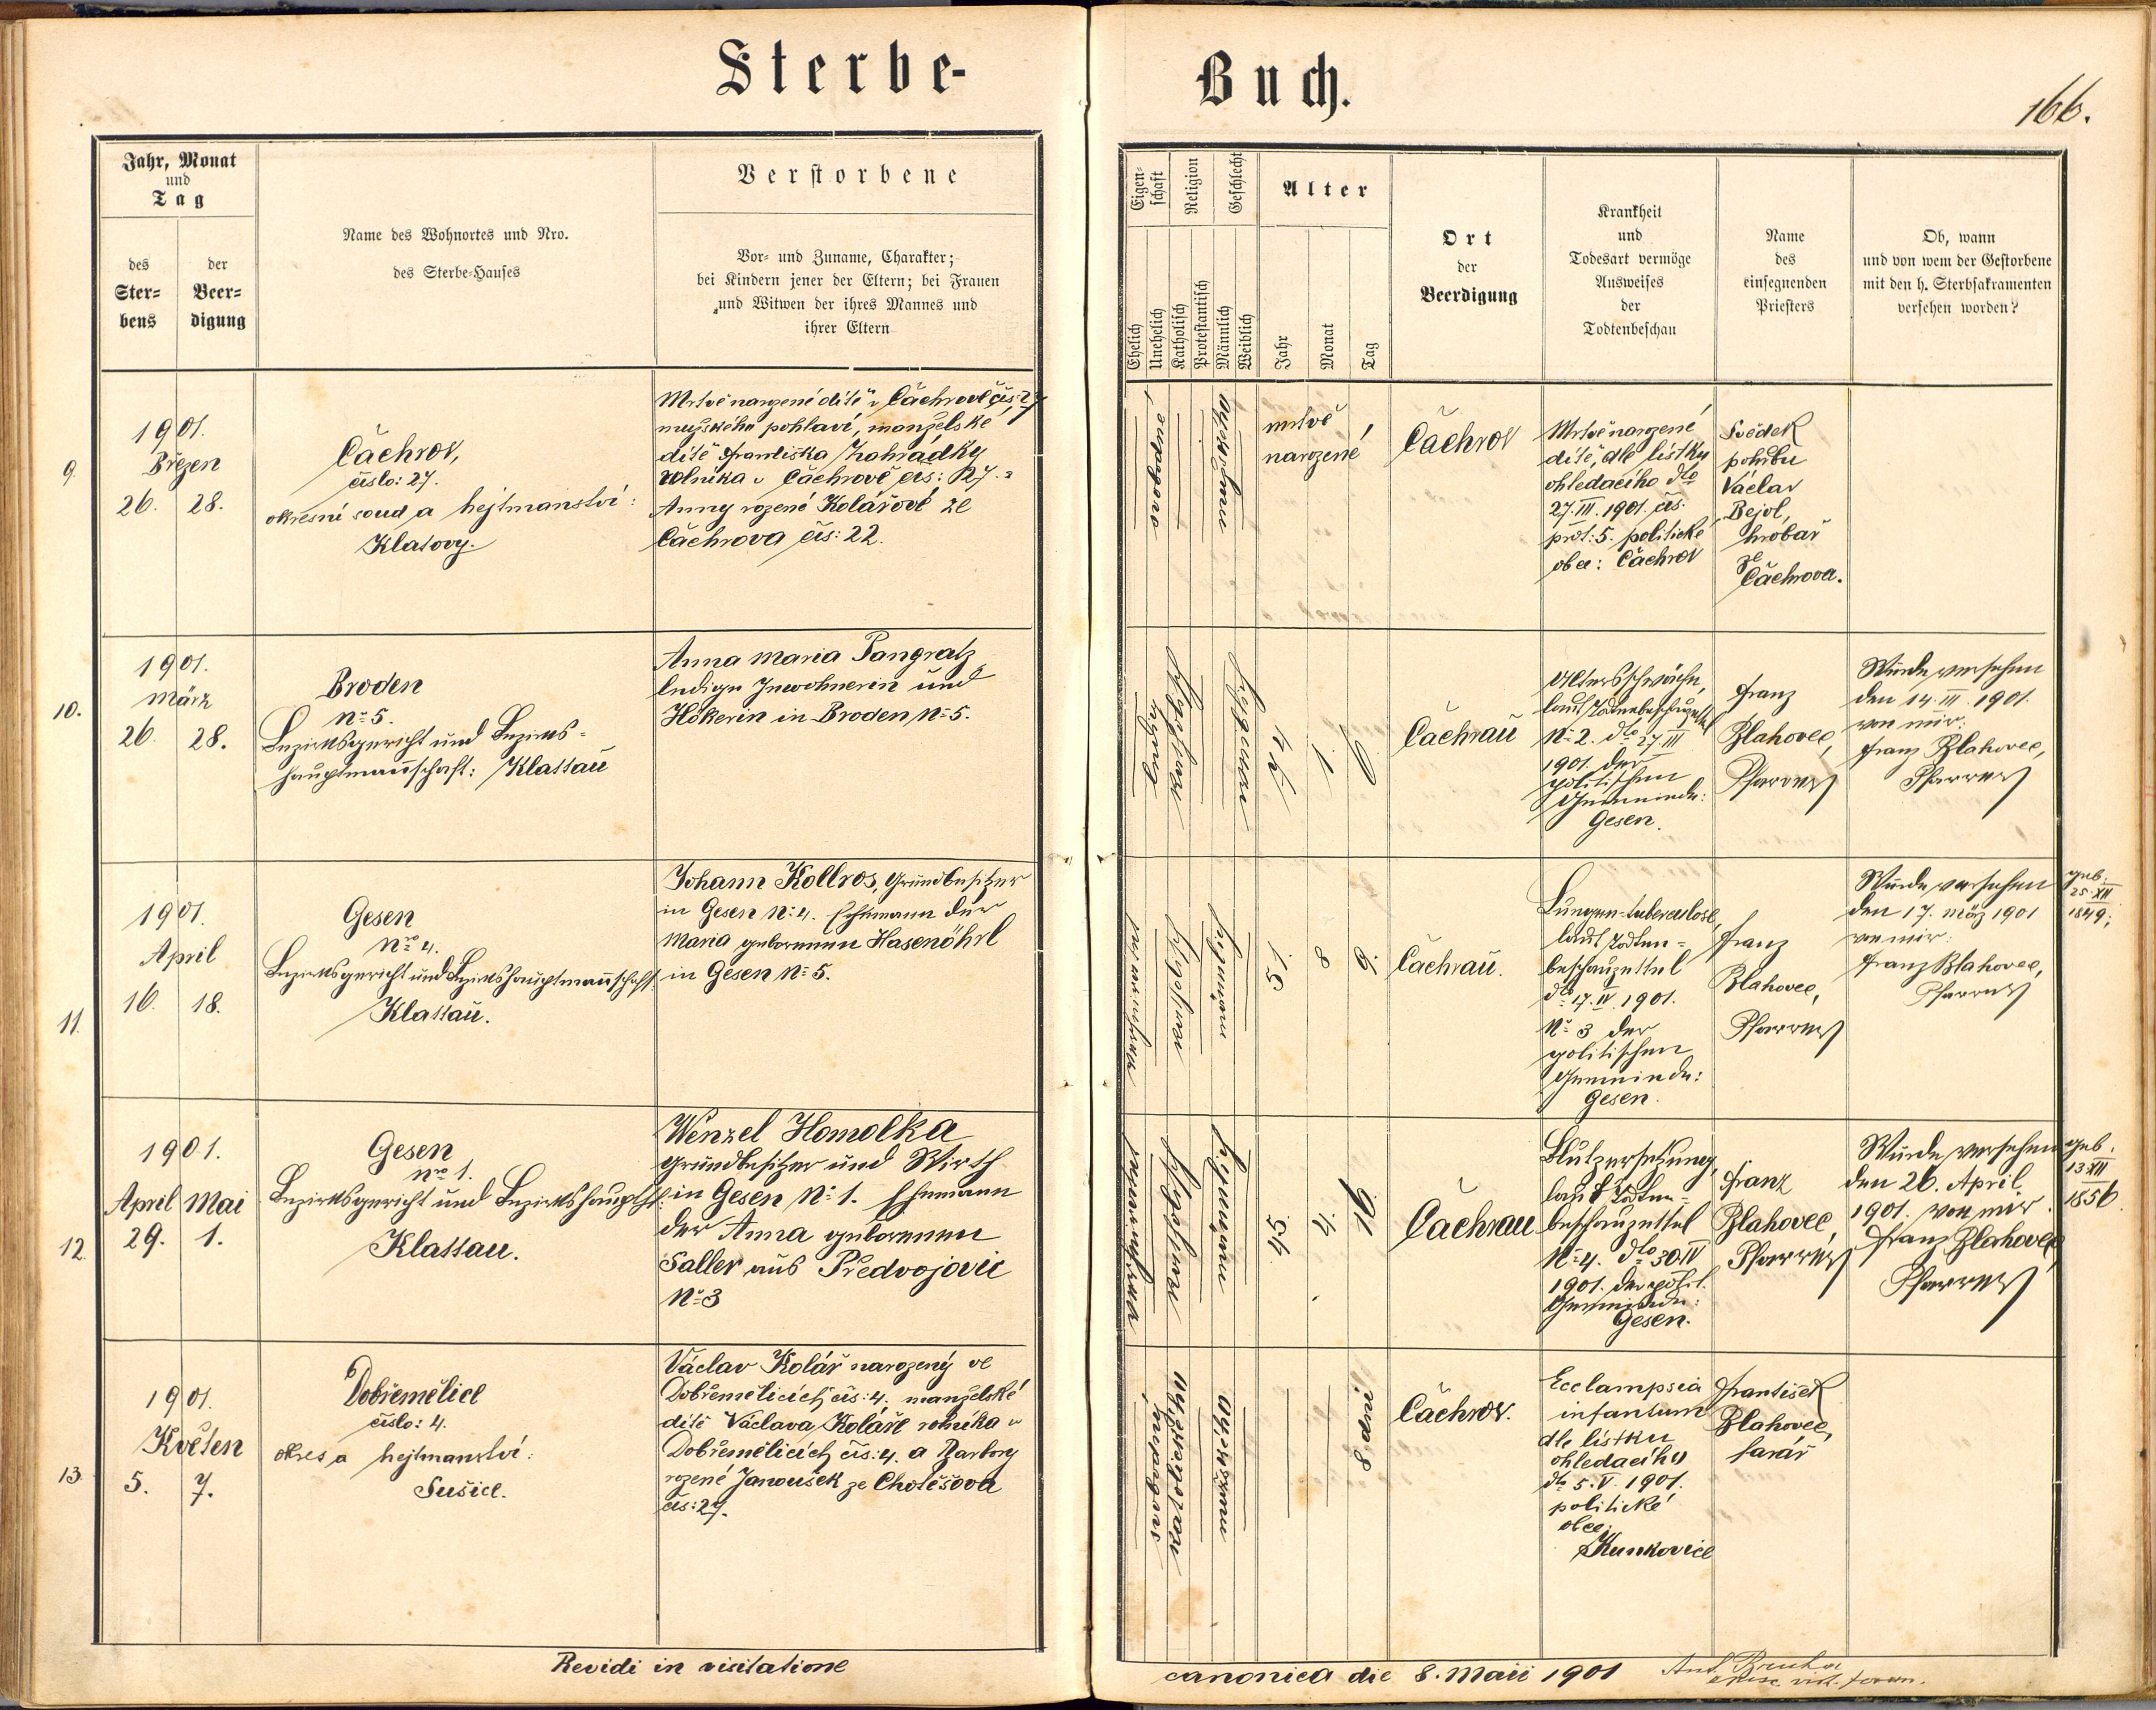 Sterbe-
Buch.
166.
Jahr, Monat
und
Tag
des
Ster=
bens
der
Beer=
digung
Name des Wohnortes und Nro.
des Sterbe-Hauses
Verstorbene
Vor- und Zuname, Charakter;
bei Kindern jener der Eltern; bei Frauen
und Witwen der ihres Mannes und
ihrer Eltern
Eigen-
schaft
Ehelich
Unehelich
Religion
Katholisch
Protestantisch
Geschlecht
Männlich
Weiblich
Alter
Jahr
Monat
Tag
Ort
der
Beerdigung
Krankheit
und
Todesart vermöge
Ausweises
der
Todtenbeschau
Name
des
einsegnenden
Priesters
Ob, wann
und von wem der Gestorbene
mit den h. Sterbsakramenten
versehen worden?
9.
1901.
Březen
26. 28.
Čachrov,
číslo: 27.
okresní soud a hejtmanství:
Klatovy.
Mrtvě narozené dítě v Čachrově čís: 27
mužského pohlaví, manželské
dítě Františka Zahrádky
rolníka v Čachrově čís: 27. a
Anny rozené Kolářové ze
Čachrova čís: 22.
mrtvě
narozené
Čachrov
Mrtvě narozené
dítě, dle lístku
ohledacího dto
27. III. 1901. čís.
prot: 5. politické
obce: Čachrov
Svědek
pohřbu
Václav
Bejvl,
hrobař
ze
Čachrova.
10.
1901.
März
26. 28.
Broden
No 5.
Bezirksgericht und Bezirks=
hauptmannschaft: Klattau
Anna Maria Pangratz
ledige Inwohnerin und
Hökerin in Broden No 5.
Čachrau
Altersschwäche,
laut Todtenbeschauzettel
No 2. dto 27. III
1901. der
politischen
Gemeinde:
Gesen.
Franz
Blahovec,
Pfarrer
Wurde versehen
den 14. III. 1901.
von mir:
Franz Blahovec,
Pfarrer
11.
1901.
April
16. 18.
Gesen
Nro 4.
Bezirksgericht und Bezirkshauptmannschaft:
Klattau.
Johann Kollros, Grundbesitzer
in Gesen No: 4. Ehemann der
Maria geborenen Hasenöhrl
in Gesen No 5.
51. 8 9.
Čachrau.
Lungen-tuberculose,
laut Todten=
beschauzettel
dto 17. IV. 1901.
No 3 der
politischen
Gemeinde:
Gesen.
Franz
Blahovec,
Pfarrer
Wurde versehen
den 17. März 1901
von mir:
Franz Blahovec,
Pfarrer
geb.
25. XII
1849;
12.
1901.
April Mai
29. 1.
Gesen
Nro 1.
Bezirksgericht und Bezirkshauptsch:
Klattau.
Wenzel Homolka
Grundbesitzer und Wirth
in Gesen No: 1. Ehemann
der Anna geborenen
Saller aus Předvojovic
No 3
45. 4. 16.
Čachrau
Blutzersetzung,
laut Todten=
beschauzettel
No: 4. dto 30. IV
1901. der polit.
Gemeinde:
Gesen.
Franz
Blahovec,
Pfarrer
Wurde versehen
den 26. April
1901. von mir.
Franz Blahovec
Pfarrer
geb.
13. XII
1856
13.
1901.
Květen
5. 7.
Dobřemělice
číslo: 4.
okres a hejtmanství:
Sušice.
Václav Kolář narozený ve
Dobřemělicích čís: 4. manželské
dítě Václava Koláře rolníka v
Dobřemělicích čís: 4. a Barbory
rozené Janoušek ze Cholěšova
čís: 27.
8 dní
Čachrov.
Ecclampsia
infantum
dle lístku
ohledacího
dto 5. V. 1901.
politické
obce:
Kunkovice
František
Blahovec,
farář
Revidi in visitatione
canonica die 8. Maii 1901